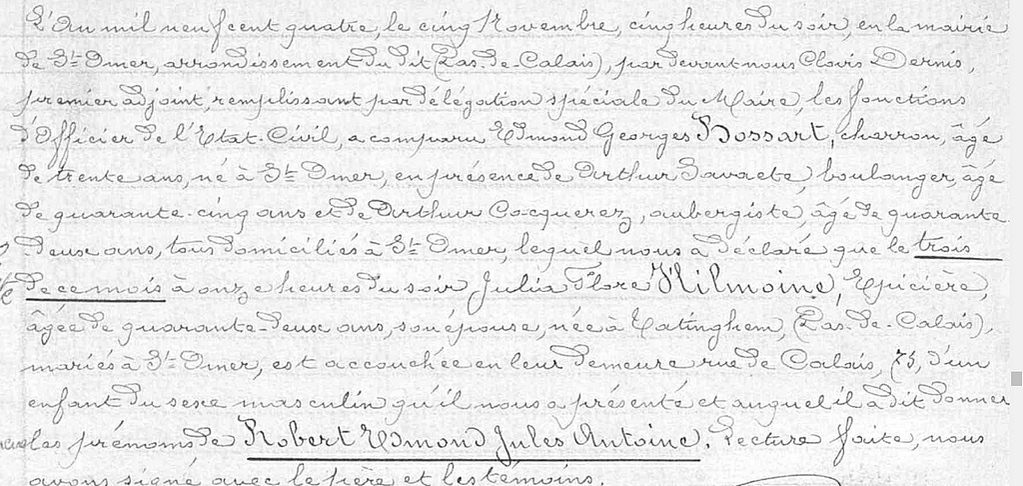 L'An mil neuf cent quatre, le cinq Novembre, cinq heures du soir, en la mairie
de St Omer, arrondissement du dit (Pas-de-Calais), par devant nous Clovis Dernis,
premier adjoint, remplissant par délégation spéciale du Maire, les fonctions
d'Officier de l'Etat-Civil, a comparu Edmond Georges Bossart, charron, âgé
de trente ans, né à St Omer, en présence de Arthur Savaete, boulanger, âgé
de quarante-cinq ans et de Arthur Cocquerez, aubergiste, âgé de quarante
deux ans, tous domiciliés à St Omer, lequel nous a déclaré que le trois
de ce mois à onze heures du soir Julia Flore Hilmoine, Epicière,
âgée de quarante-deux ans, son épouse, née à Tatinghem, (Pas-de-Calais),
mariés à St Omer, est accouchée en leur demeure rue de Calais, 75, d'un
enfant du sexe masculin qu'il nous a présenté et auquel il a dit donner
les prénoms de Robert Edmond Jules Antoine. Lecture faite, nous
avons signé avec le père et les témoins.